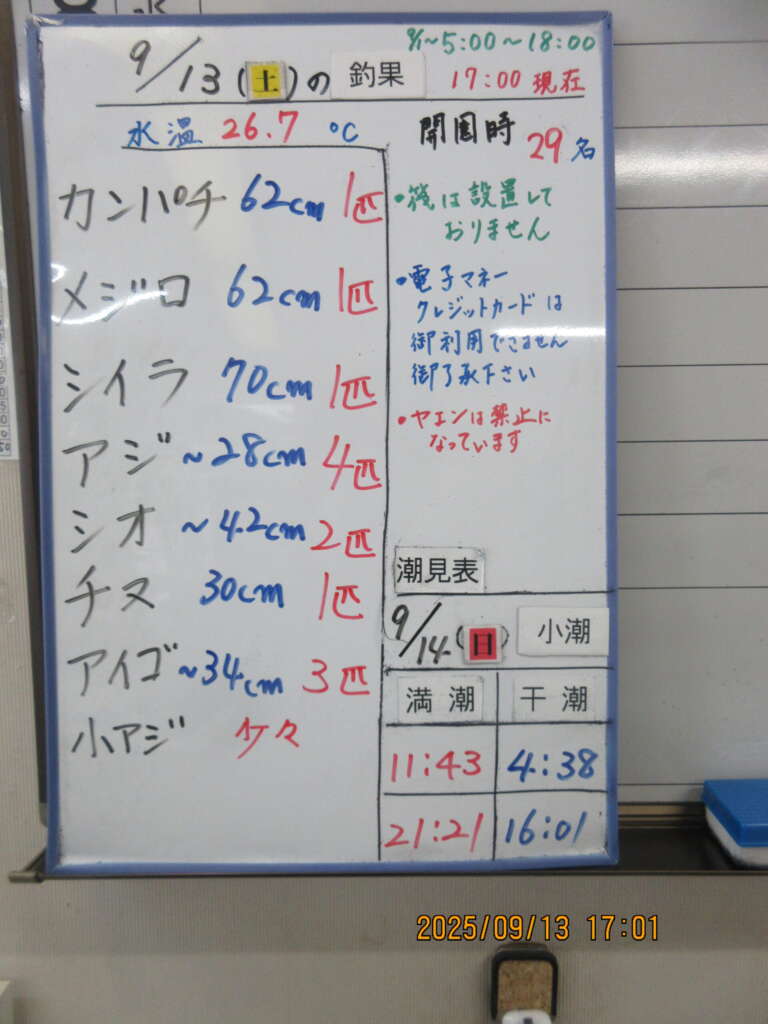 9/13(土)の釣果
9/1~5:00~18:00
17:00 現在
水温 26.7 ℃
開園時 29名
カンパチ 62cm 1匹
メジロ 62cm 1匹
シイラ 70cm 1匹
アジ ~28cm 4匹
シオ ~42cm 2匹
チヌ 30cm 1匹
アイゴ ~34cm 3匹
小アジ 少々
・筏は設置して
おりません
・電子マネー
クレジットカードは
御利用できません
御了承下さい
・ヤエンは禁止に
なっています
潮見表
9/14(日) 小潮
満潮 干潮
11:43 4:38
21:21 16:01
2025/09/13 17:01